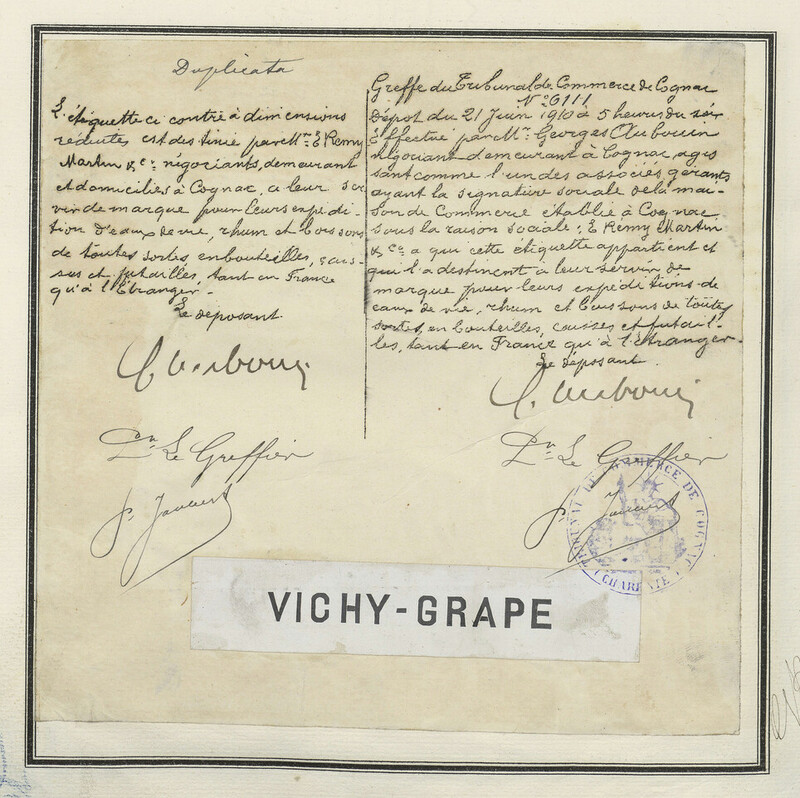 Duplicata
L'étiquette ci contre à dimensions
réduites est destinée par Mrs E Remy
Martin & Cie négociants, demeurant
et domiciliés à Cognac, a leur ser
vir de marque pour leurs expédi-
tion d'eaux de vie, rhum et boissons
de toutes sortes, en bouteilles, cais-
ses et futailles, tant en France
qu'à l'Etranger.
Le déposant
Le Greffier
Greffe du Tribunal de Commerce de Cognac
No 6111
Dépot du 21 Juin 1910 à 5 heures du soir
Effectué par Mr Georges Aubouin
négociant demeurant à Cognac, agis
sant comme l'un des associés, gérants
ayant la signature sociale de la mai-
son de Commerce établie à Cognac
sous la raison sociale: E Remy Martin
& Cie a qui cette étiquette appartient et
qui l'a destinent a leur servir de
marque pour leurs expéditions de
eaux de vie, rhum et boissons de toutes
sortes, en bouteilles, caisses et futail-
les, tant en France qu'à l'étranger.
Le déposant
Le Greffier
TRIBUNAL DE COMMERCE DE COGNAC
(CHARENTE)
VICHY-GRAPE